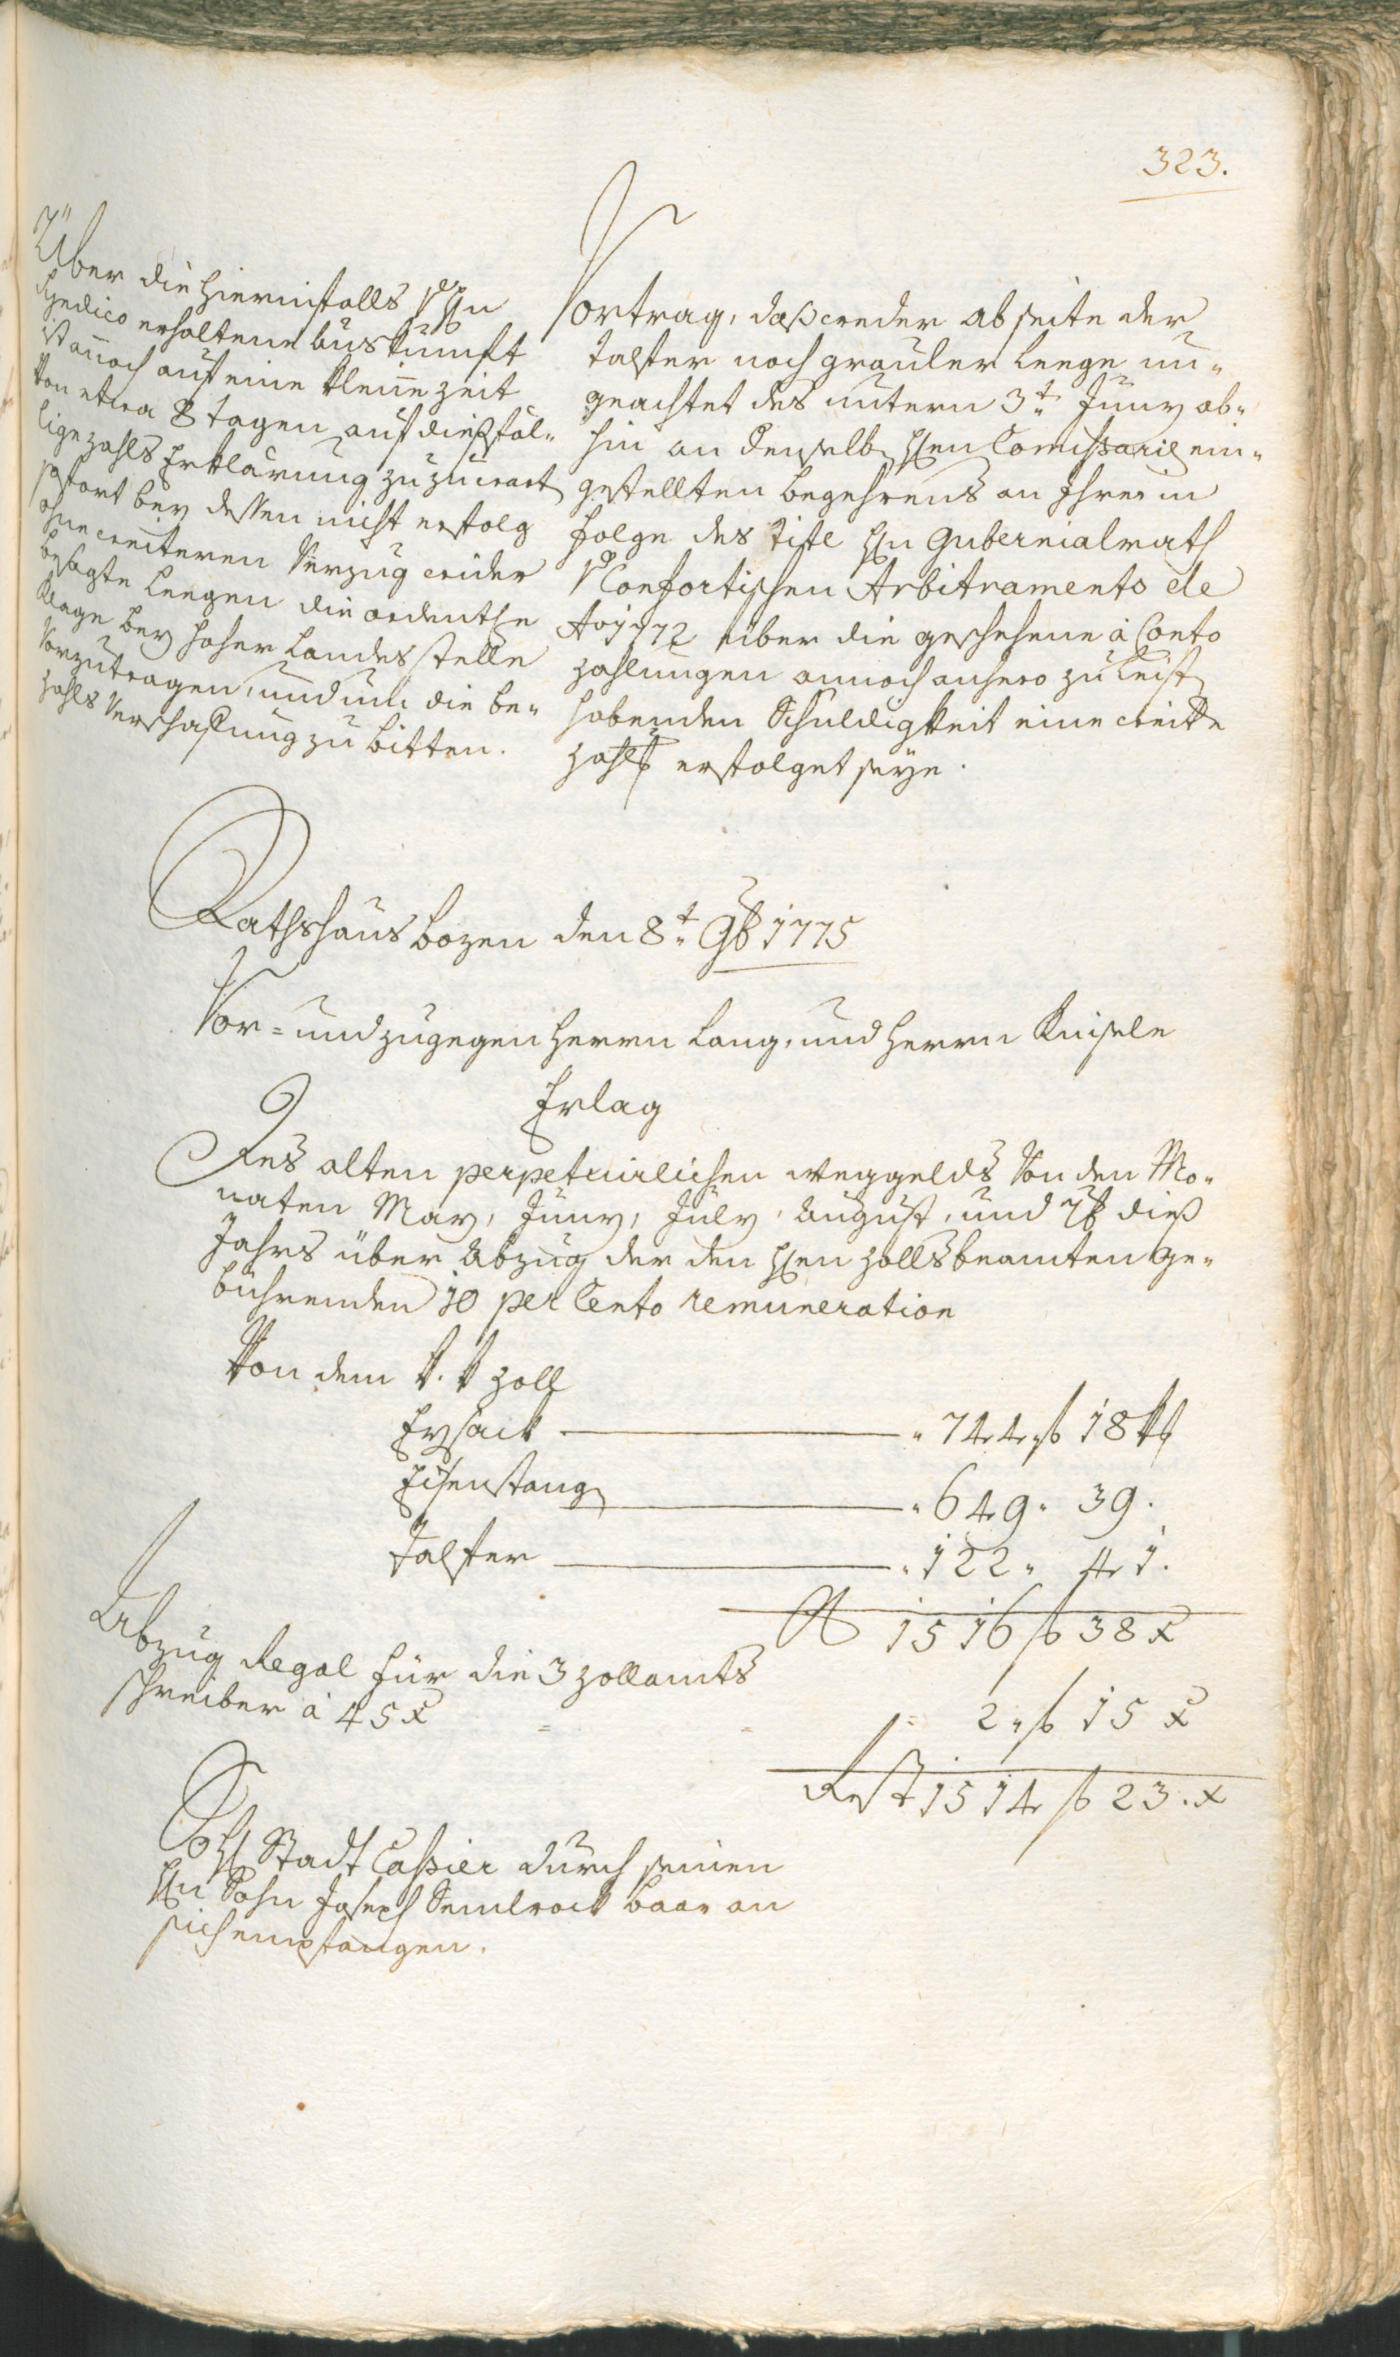 323.
Über die hierinfalls H:
Syndico erhaltene Auskunft
ist annoch auf eine kleine Zeit
von etwa 8 tagen auf diesfäl-
lige zahls Erklärung zuzuwart
sofort bey dessen nicht erfolg
ohne weiteren Verzug wider
besagte Leegen die ordentliche
Klage bey hoher Landesstelle
Vorzutragen, und um die be-
zahls Verschaffung zu bitten.
Vortrag, daß weder ab seite der
Talfer noch grauler Leege un-
geachtet des untern 3t Juny ab-
hin an denselb Hen Comissarie ein-
gestellten begehrens an Ihrer in
folge des Titl Hn Gubernialrath
Confortischen Arbitraments de
Ao 1772 über die geschehene à Conto
zahlungen annoch anhero zu leist
habenden Schuldigkeit eine weitte
zahls erfolget seye.
Rathshaus Bozen den 8t 9b 1775
Vor- und zugegen Herrn Lang, und Herrn Knisele
Erlag
Des alten perpetuirlichen Weggelds Von den Mo-
naten May, Juny, July, August, und 7b dieß
Jahrs über Abzug der den Hen Zollsbeamten ge-
bührenden 10 per Cento remuneration
Von dem k. k Zoll
Eysack — 744 f 18 k
Eisenstang — 649 " 39.
Talfer — 122 " 41.
1516 f 38 x
Abzug Regal für die 3 Zollamts
schreiber à 45 x = = = 2 f 15 x
Rest 1514 f 23. x
So H Stadt Cassier durch seinen
Hn Sohn Joseph Semlrock baar an
sich empfangen.